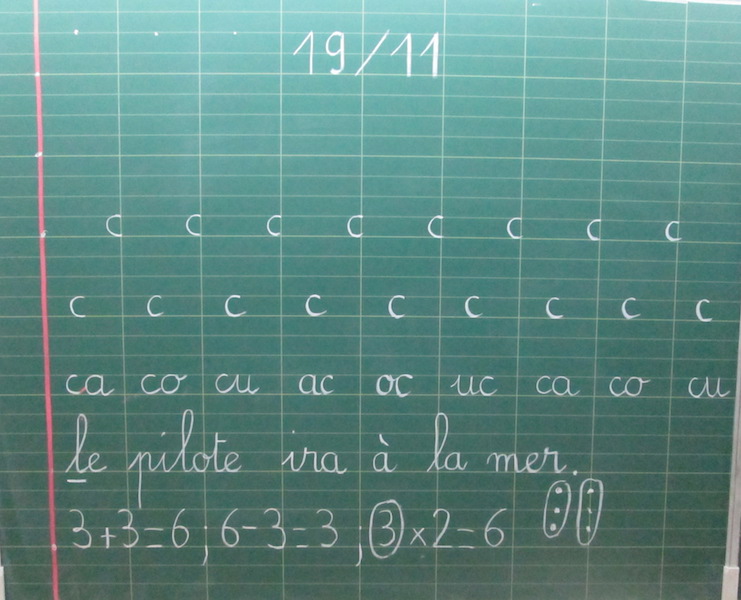 19/11
c c c c c c c c
c c c c c c c c c
ca co cu ac oc uc ca co cu
le pilote ira à la mer.
3+3=6 ; 6-3=3 ; 3×2=6